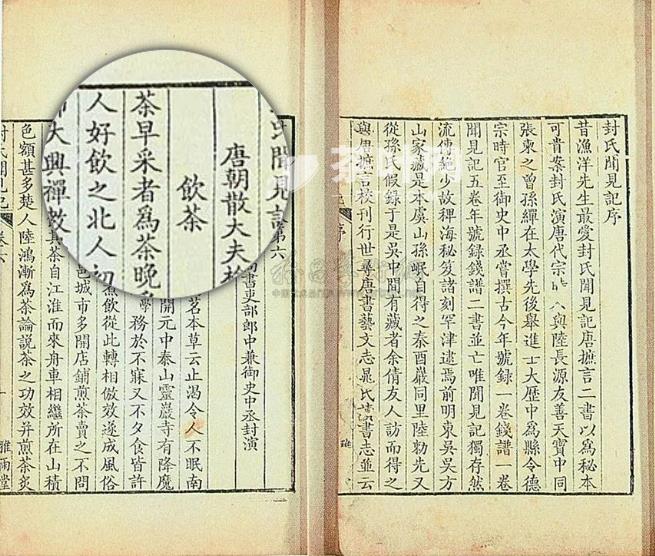 封氏聞見記序
昔漁洋先生最愛封氏聞見記唐摭言二書以為秘本
可貴案封氏演唐代宗與陸長源友善天寶中同
張柬之曾孫繟在太學先後舉進士大歷中為縣令德
宗時官至御史中丞嘗撰古今年號錄一卷錢譜一卷
聞見記五卷年號錄錢譜二書並亡唯聞見記獨存然
流傳絕少故稗海秘笈諸刻罕津逮焉前明東吳吳方
山家藏是本虞山孫岷自得之秦酉巖同里陸勑先又
從孫氏假錄于是吳中間有藏者余倩友人訪而得之
與唐摭言校刊行世尋唐書藝文志晁氏讀書志並云
序
雅
氏聞見記第六
唐朝散大夫
書吏部郎中兼御史中丞封演
飲茶
茶早采者為茶晚
茗本草云止渴令人不眠南
人好飲之北人初
開元中泰山靈巖寺有降魔
大興禪教
學務於不寐又不夕食皆許
煮飲從此轉相倣效遂成風俗
色城市多開店鋪煎茶賣之不問
其茶自江淮而來舟車相繼所在山積
色額甚多楚人陸鴻漸為茶論說茶之功效并煎茶炙
封氏聞見記 卷六 一 雅雨堂